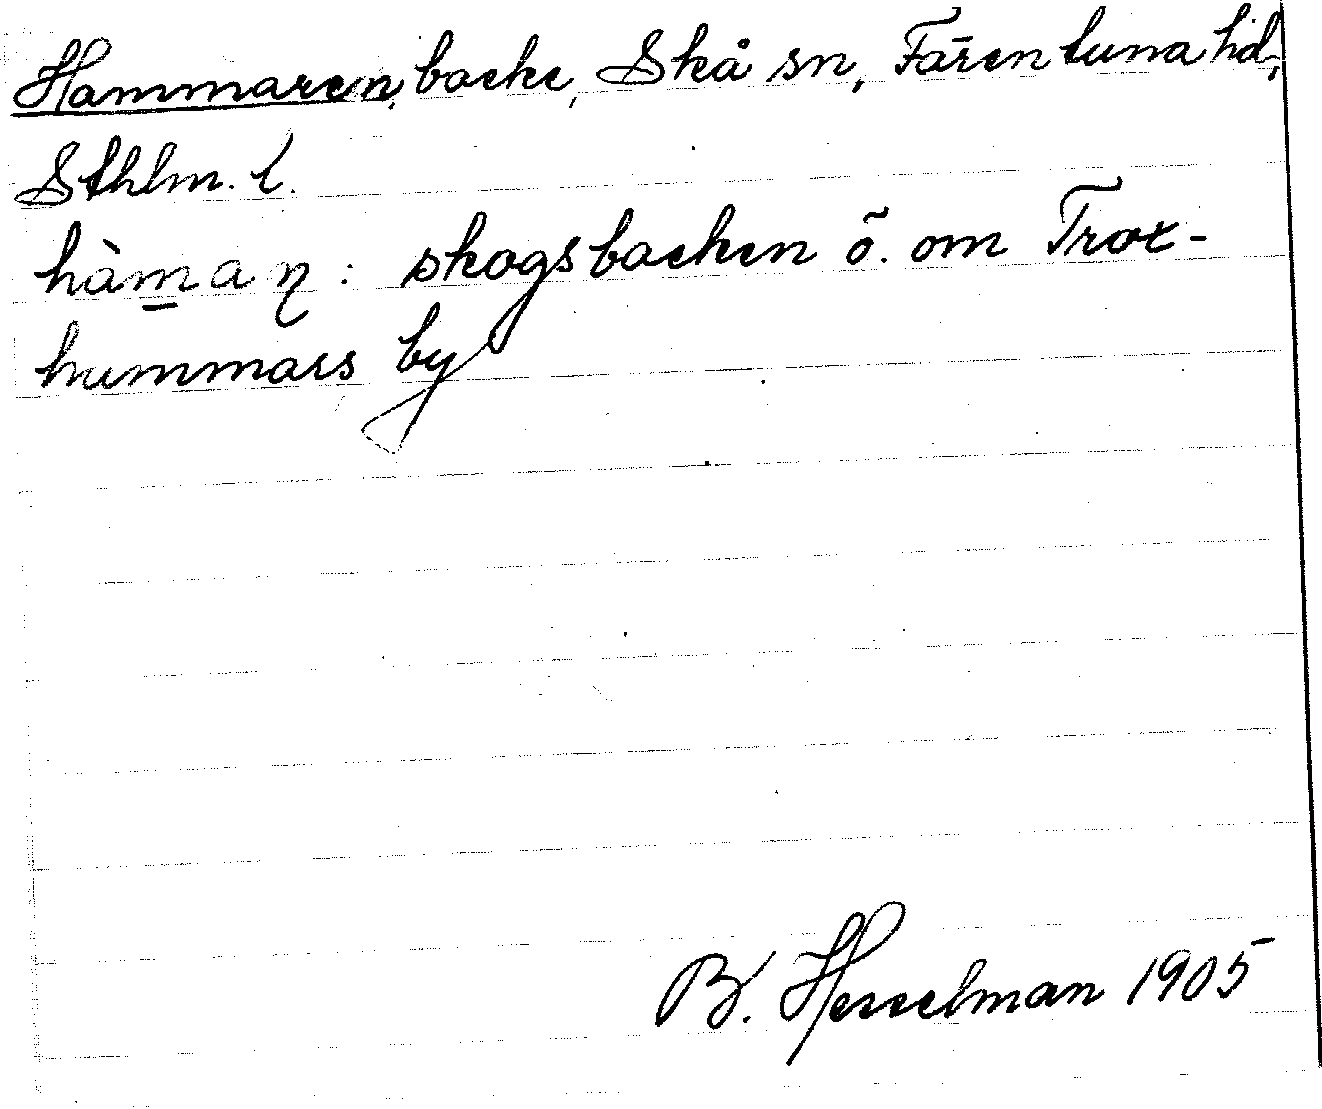 Hammaren, backe, Skå sn, Färentuna hd,
Sthlm. l.
hàm̲aɳ : skogsbacken ö. om Trox-
hummars by
B. Hesselman 1905